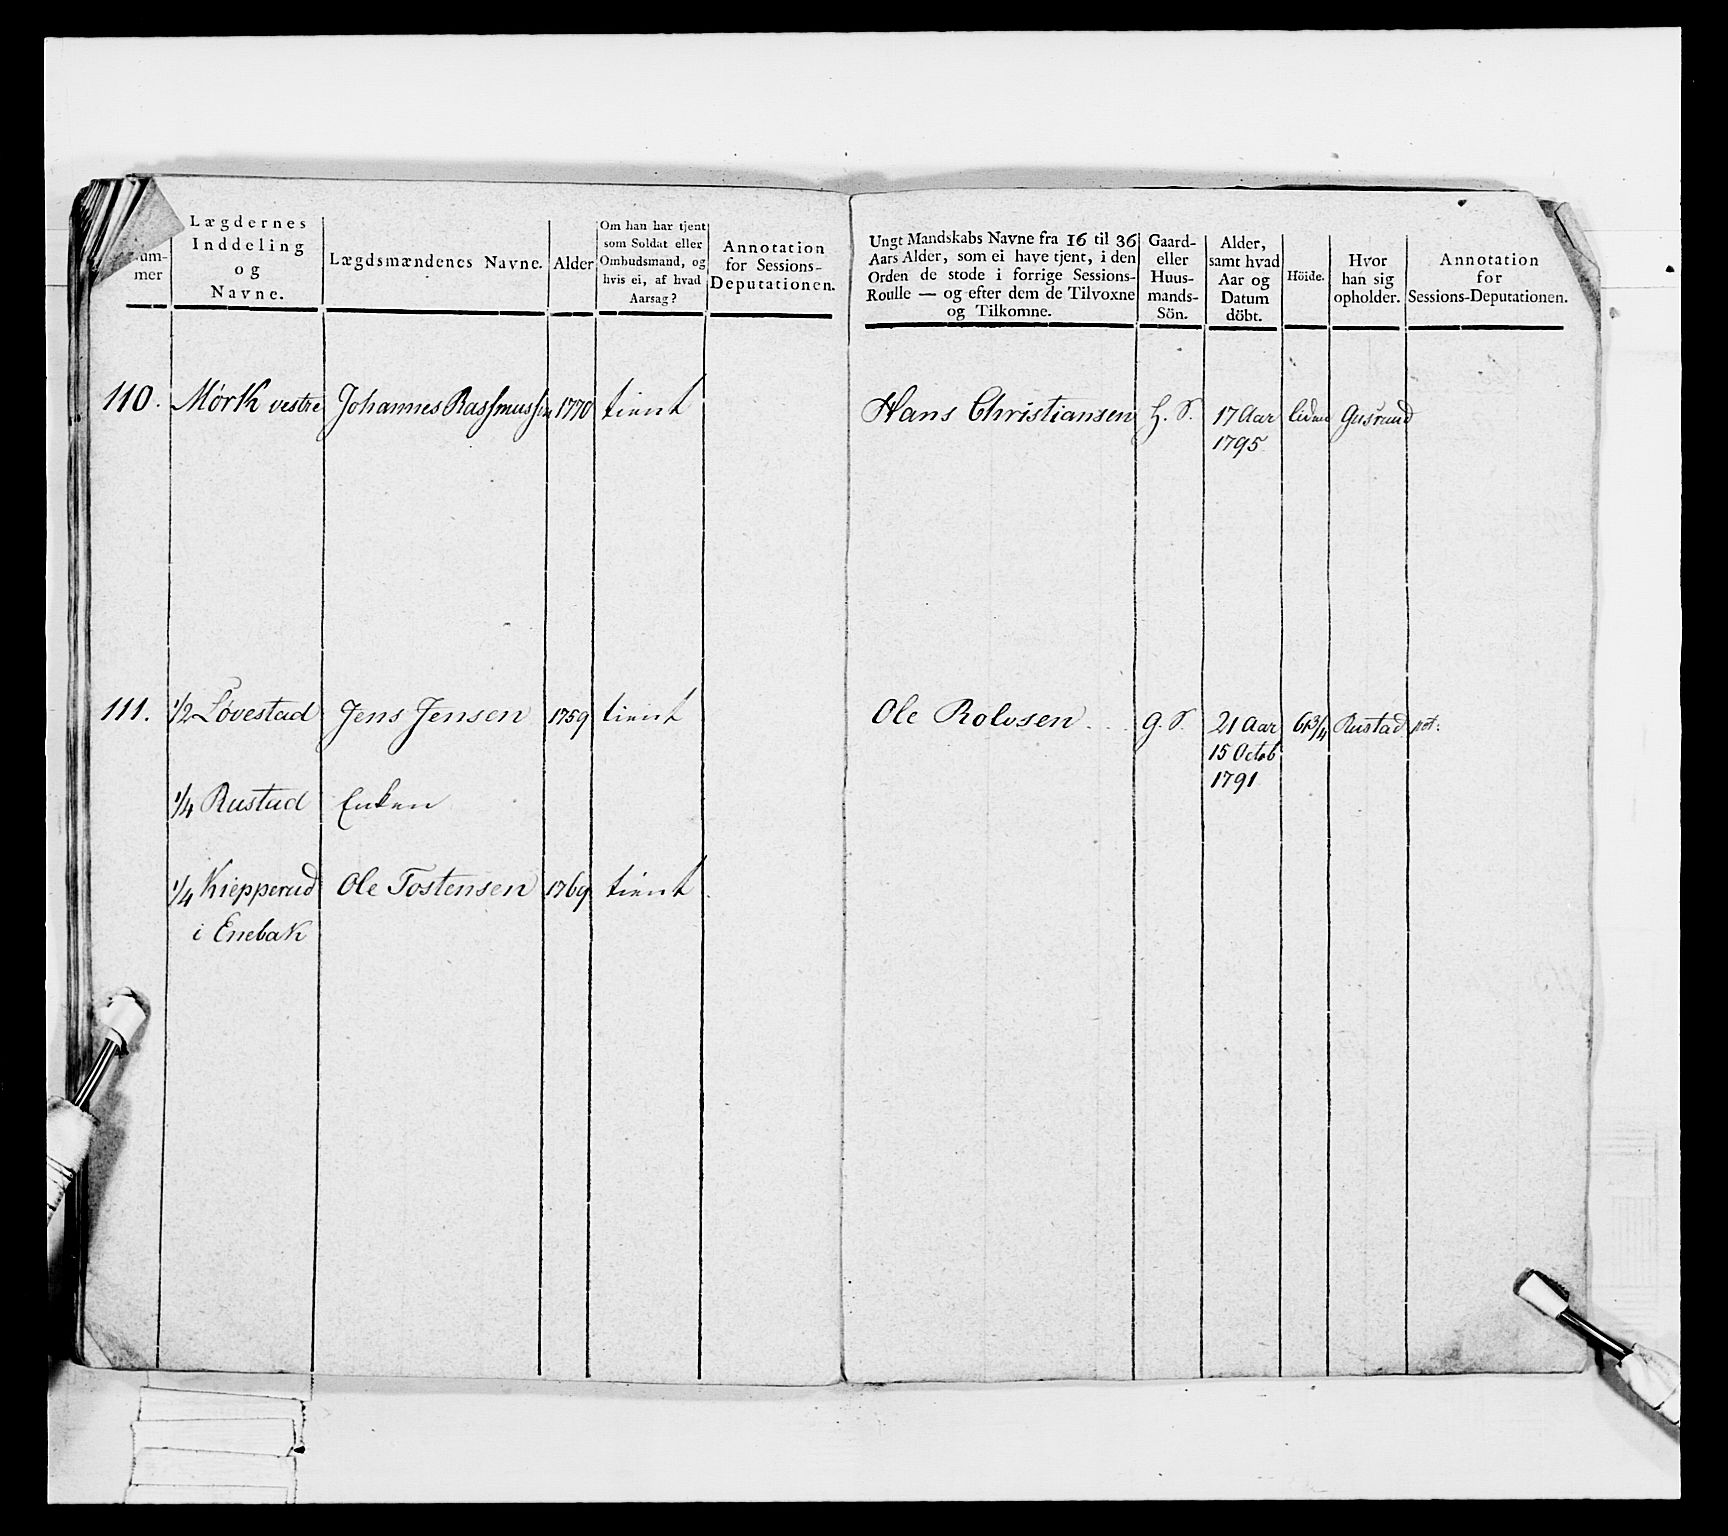 um-
mer
Lægdernes
Inddeling
og
Navne.
Lægdsmændenes Navne.
Alder
Om han har tjent
som Soldat eller
Ombudsmand, og
hvis ei, af hvad
Aarsag?
Annotation
for Sessions-
Deputationen.
Ungt Mandskabs Navne fra 16 til 36
Aars Alder, som ei have tjent, i den
Orden de stode i forrige Sessions-
Roulle — og efter dem de Tilvoxne
og Tilkomne.
Gaard-
eller
Huus-
mands-
Sön.
Alder,
samt hvad
Aar og
Datum
döbt.
Höide.
Hvor
han sig
opholder.
Annotation
for
Sessions-Deputationen.
110. Mørk vestre Johannes Rasmussen 1770 tient
Hans Christiansen H. S. 17 Aar liden
1795
111. 1/2 Løvestad Jens Jensen 1759 tient
Ole Rolvsen g. S. 21 Aar Rustad
15 Octob
1791
1/4 Rustad Enken
1/4 Kiepperud Ole Tostensen 1769 tient
i Enebak